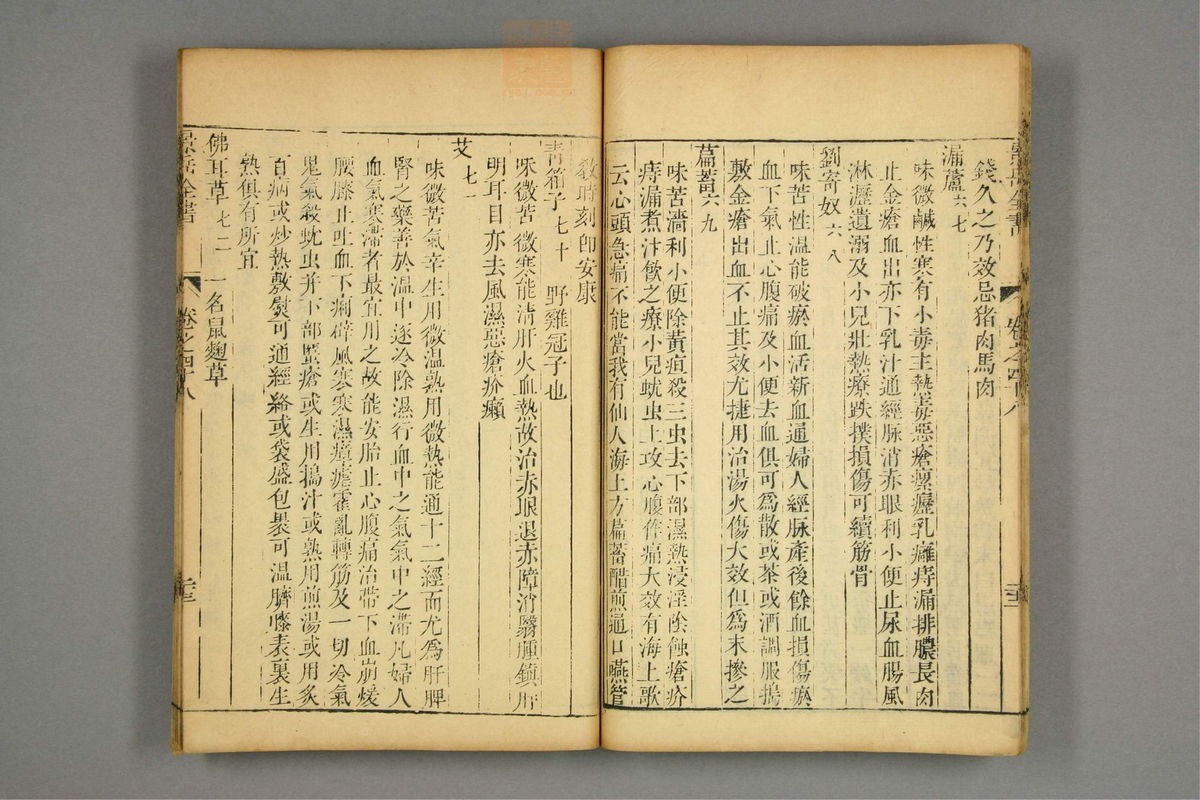 錢久之乃效忌猪肉馬肉
漏蘆六七
味微鹹性寒有小毒主熱毒惡瘡瘰癧乳癰痔漏排膿長肉
止金瘡血出亦下乳汁通經脉消赤眼利小便止尿血腸風
淋瀝遺溺及小兒壯熱療跌撲損傷可續筋骨
劉寄奴六八
味苦性温能破瘀血活新血通婦人經脉產後餘血損傷瘀
血下氣止心腹痛及小便去血俱可爲散或茶或酒調服搗
敷金瘡出血不止其效尤捷用治湯火傷大效但爲末摻之
萹蓄六九
味苦濇利小便除黃疸殺三虫去下部濕熱浸淫陰蝕瘡疥
痔漏煮汁飲之療小兒蚘虫上攻心腹作痛大效有海上歌
云心頭急痛不能當我有仙人海上方萹蓄醋煎通口嚥管
教時刻即安康
青箱子七十 野雞冠子也
味微苦微寒能清肝火血熱故治赤眼退赤障消翳腫鎮肝
明耳目亦去風濕惡瘡疥癩
艾七一
味微苦氣辛生用微温熟用微熱能通十二經而尤爲肝脾
腎之藥善於温中逐冷除濕行血中之氣氣中之滯凡婦人
血氣寒滯者最宜用之故能安胎止心腹痛治帶下血崩煖
腰膝止吐血下痢辟風寒寒濕瘴瘧霍亂轉筋及一切冷氣
鬼氣殺蚘虫并下部䘌瘡或生用搗汁或熟用煎湯或用炙
百病或炒熱敷熨可通經絡或袋盛包裹可温臍膝表裏生
熱俱有所宜
佛耳草七二 一名鼠麴草
景岳全書 卷之四十八